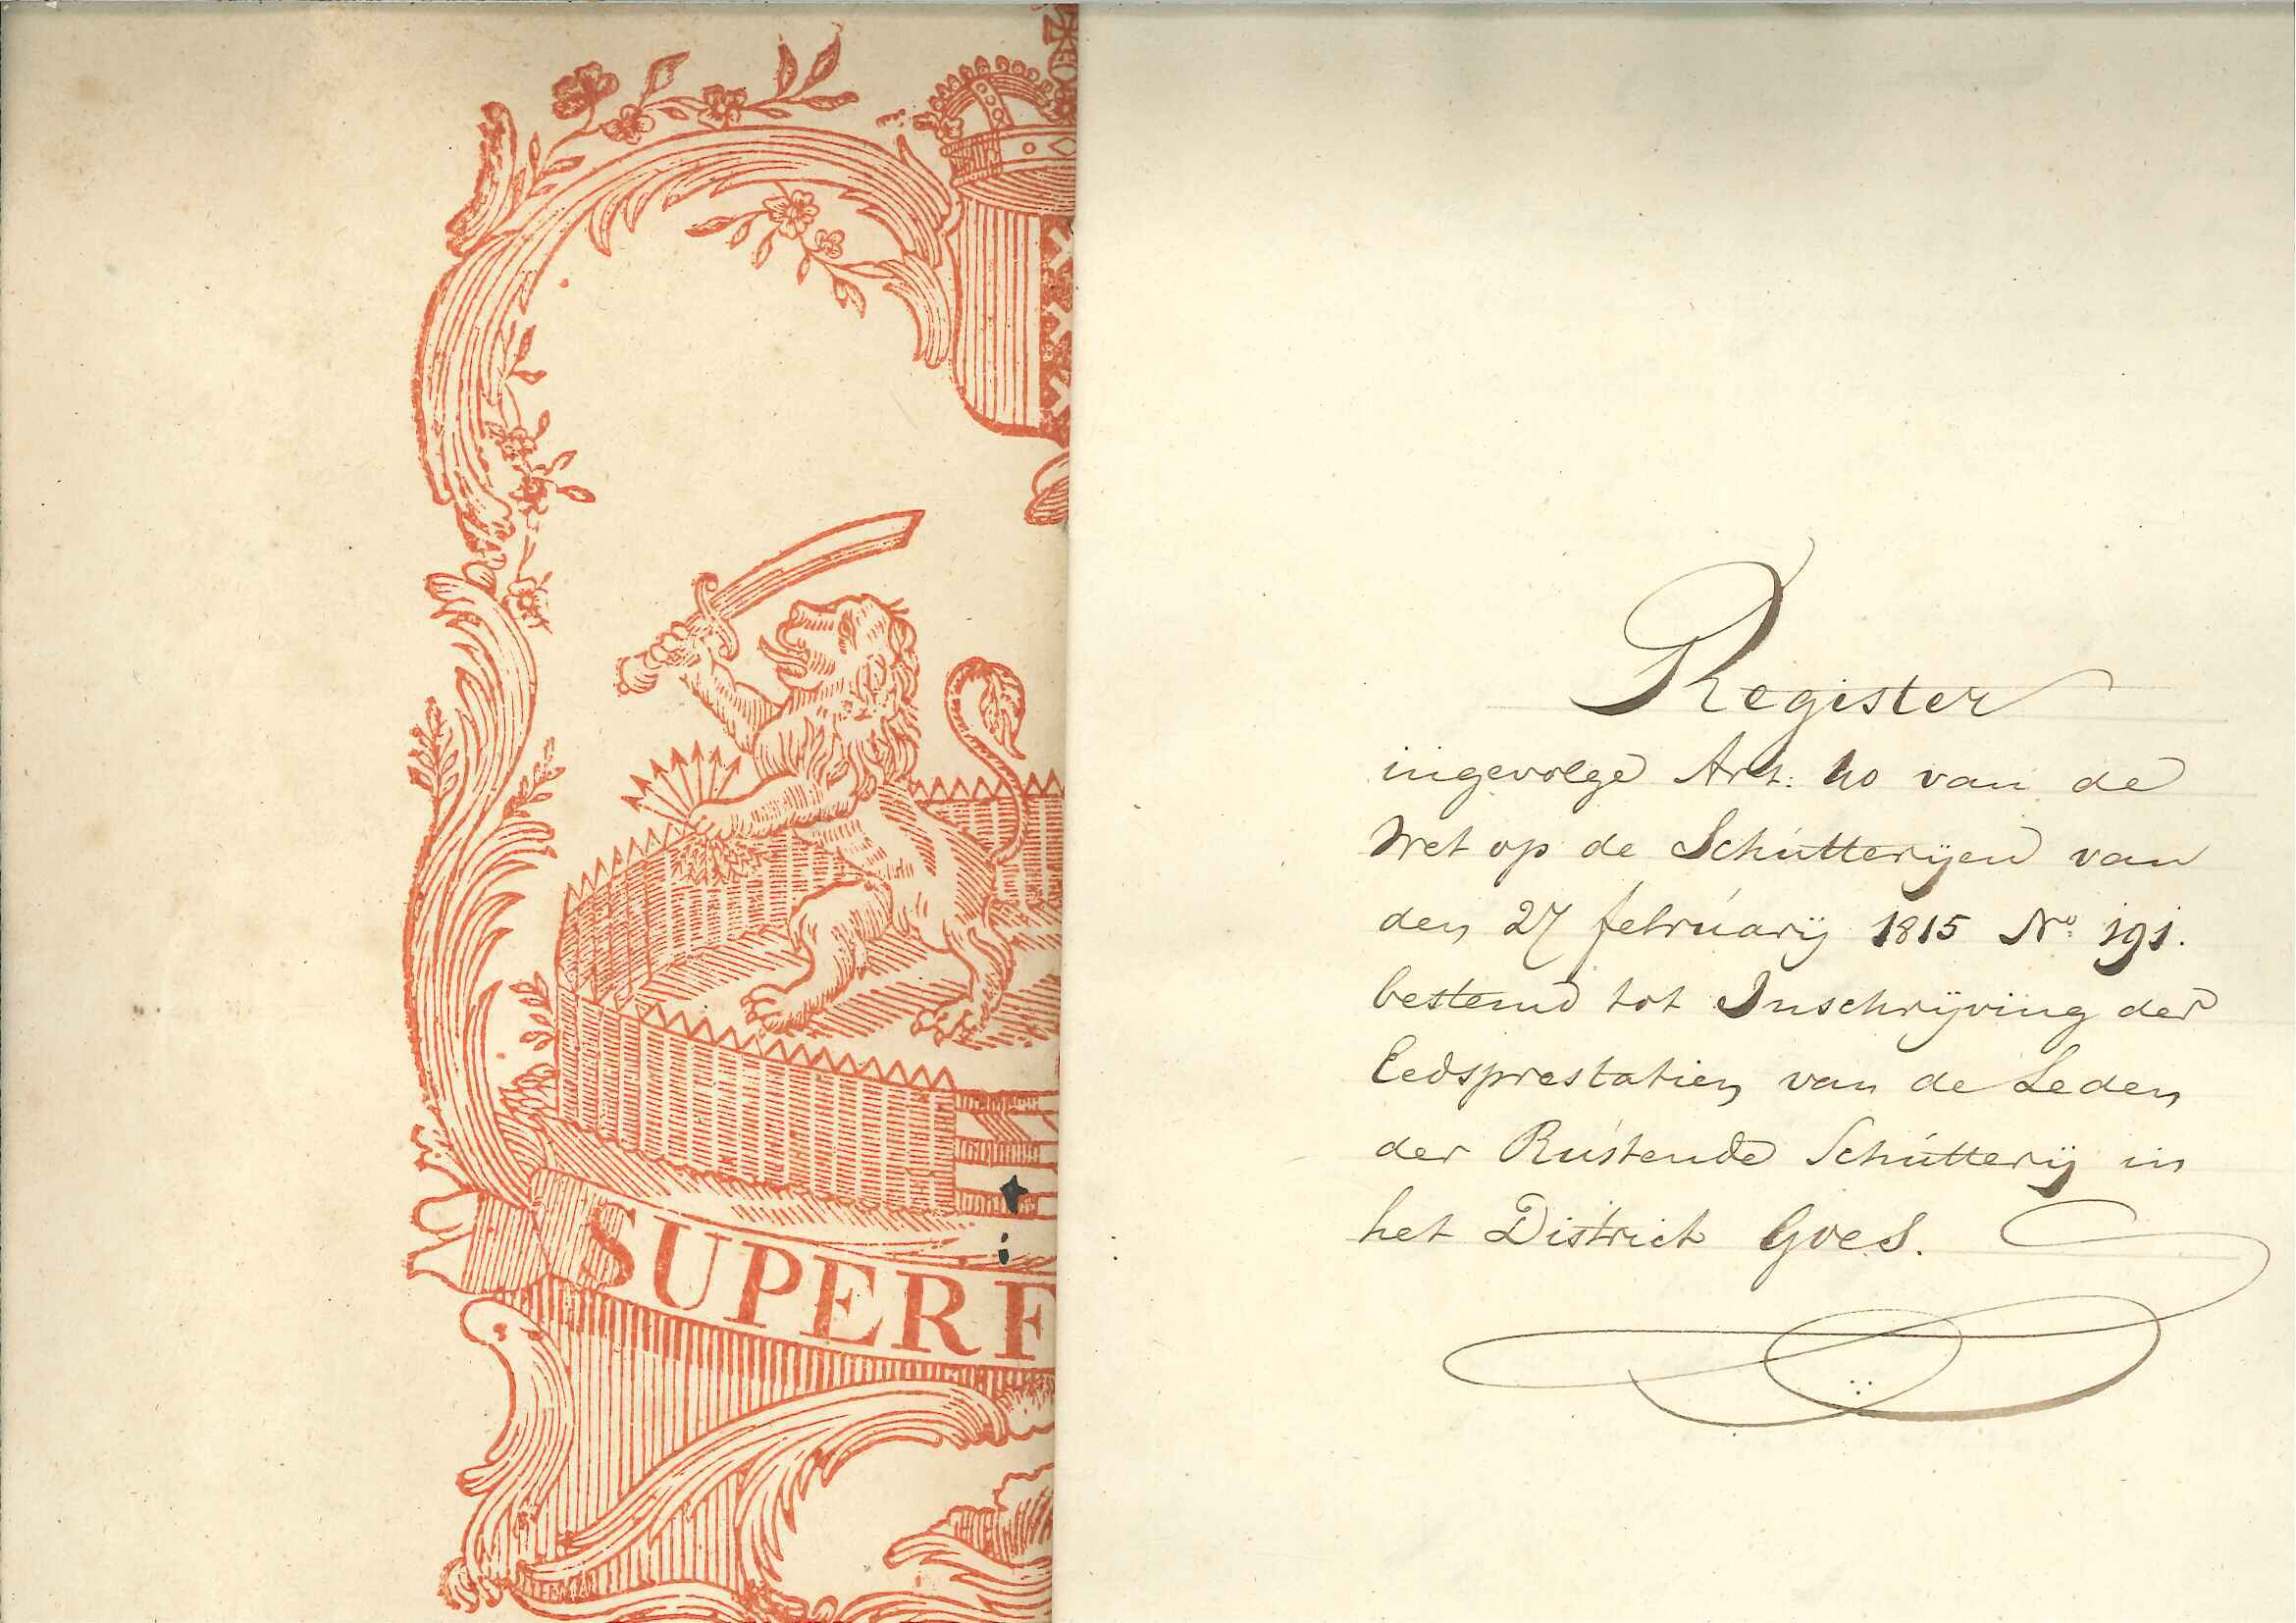 SUPERF
Register
ingevolge Art: 40 van de
Wet op de Schutterijen van
den 27 februarij 1815 No 191.
bestemd tot Inschrijving der
Eedsprestatien van de Leden
der Rustende Schutterij in
het District Goes.